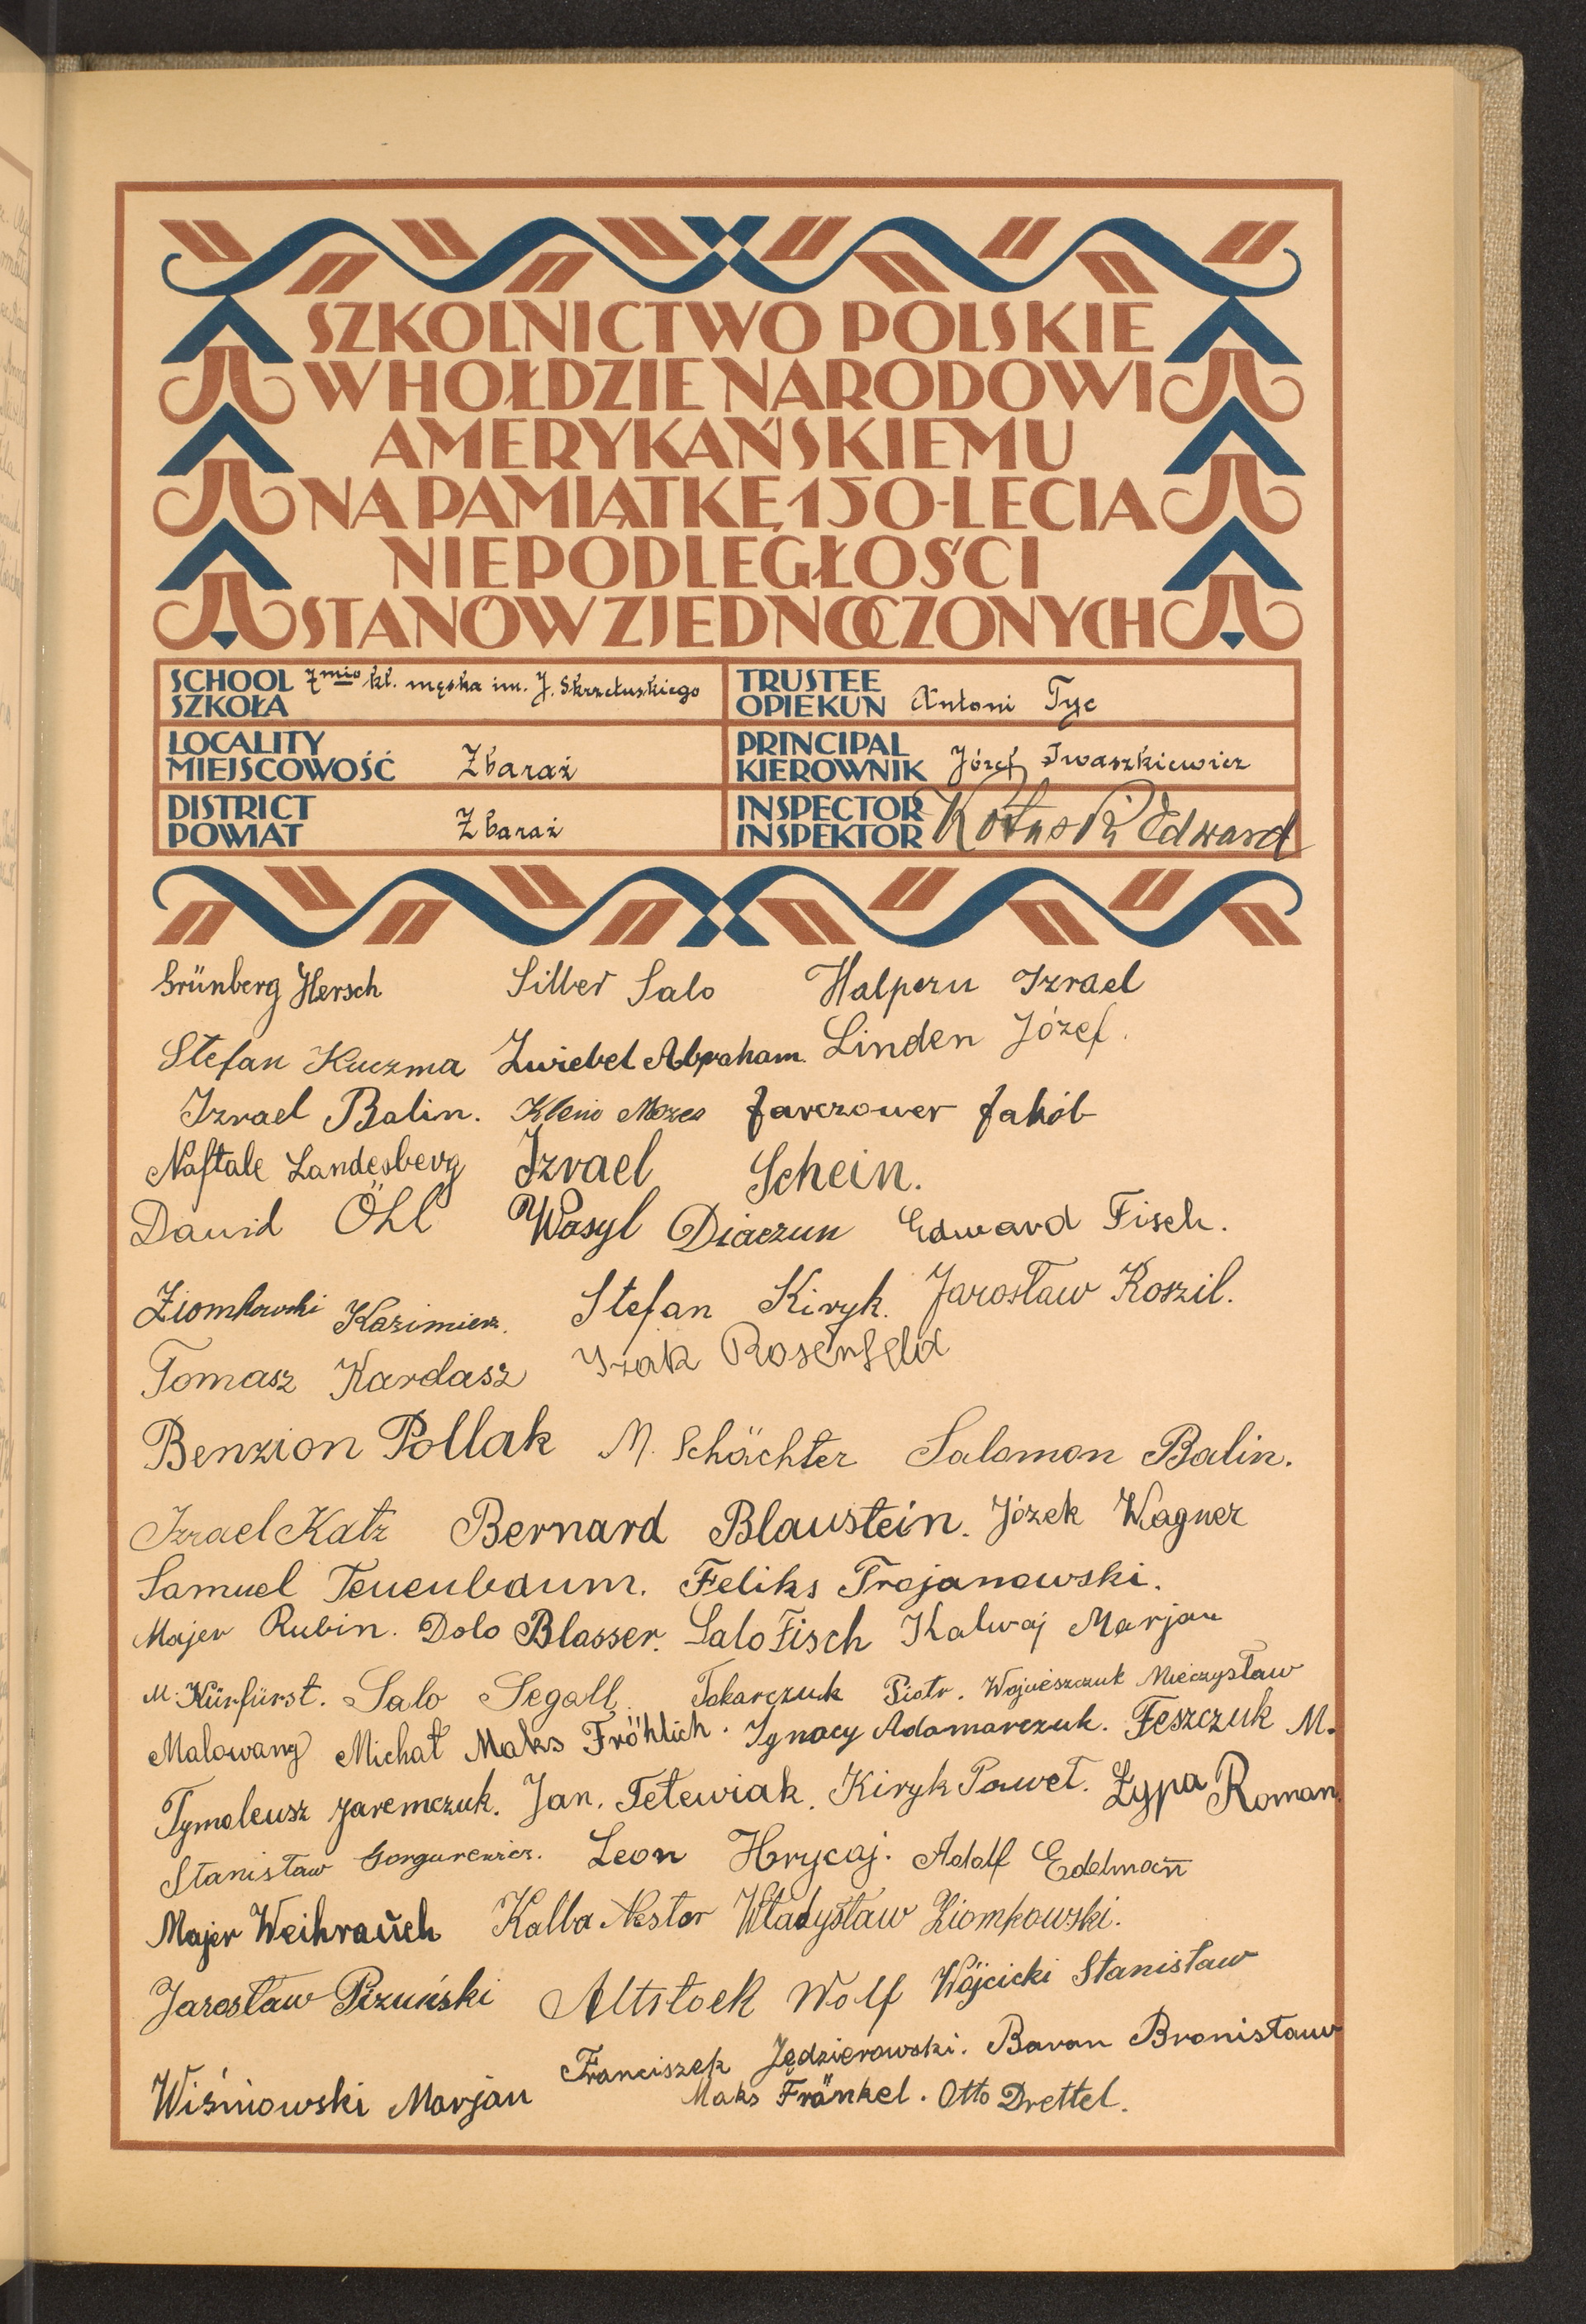 SZKOLNICTWO POLSKIE
W HOŁDZIE NARODOWI
AMERYKAŃSKIEMU
NA PAMIĄTKĘ 150-LECIA
NIEPODLEGŁOŚCI
STANÓW ZJEDNOCZONYCH
SCHOOL SZKOŁA 7mio kl. męska im. J. Skrzetuskiego
TRUSTEE OPIEKUN Antoni Tyc
LOCALITY MIEJSCOWOŚĆ Zbaraż
PRINCIPAL KIEROWNIK Józef Iwaszkiewicz
DISTRICT POWIAT Zbaraż
INSPECTOR INSPEKTOR Edward
Grünberg Hersch Silber Salo Halpern Izrael
Stefan Kuczma Zwiebel Abraham. Linden Józef.
Izrael Balin. Mozes Jarczower Jakób
Naftale Landesberg Izrael Schein.
Dawid Öhl Wasyl Diaczun Edward Fisch.
Ziomkowski Kazimierz. Stefan Kiryk. Jarosław Koszil.
Tomasz Kardasz Izak Rosenfeld
Benzion Pollak M. Schächter Salomon Balin.
Izrael Katz Bernard Blaustein. Józek Wagner
Samuel Tenenbaum. Feliks Trojanowski.
Majer Rubin. Dolo Blasser. Salo Fisch Kalwaj Marjan
M. Kürfürst. Salo Segall. Tokarczuk Piotr. Wojcieszczuk Mieczysław
Malowany Michał Maks Fröhlich. Ignacy Adamarczuk. Feszczuk M.
Tymoleusz Jaremczuk. Jan. Tetewiak. Kiryk Paweł. Łypa Roman.
Stanisław Gorgurewicz. Leon Hrycaj. Adolf Edelmann
Majer Weihrauch Kalba Nestor Władysław Ziomkowski.
Jarosław Pizuński Altstock Wolf Wójcicki Stanisław
Franciszek Jędzierowski. Baran Bronisław
Wiśniowski Marjan Maks Fränkel. Otto Drettel.